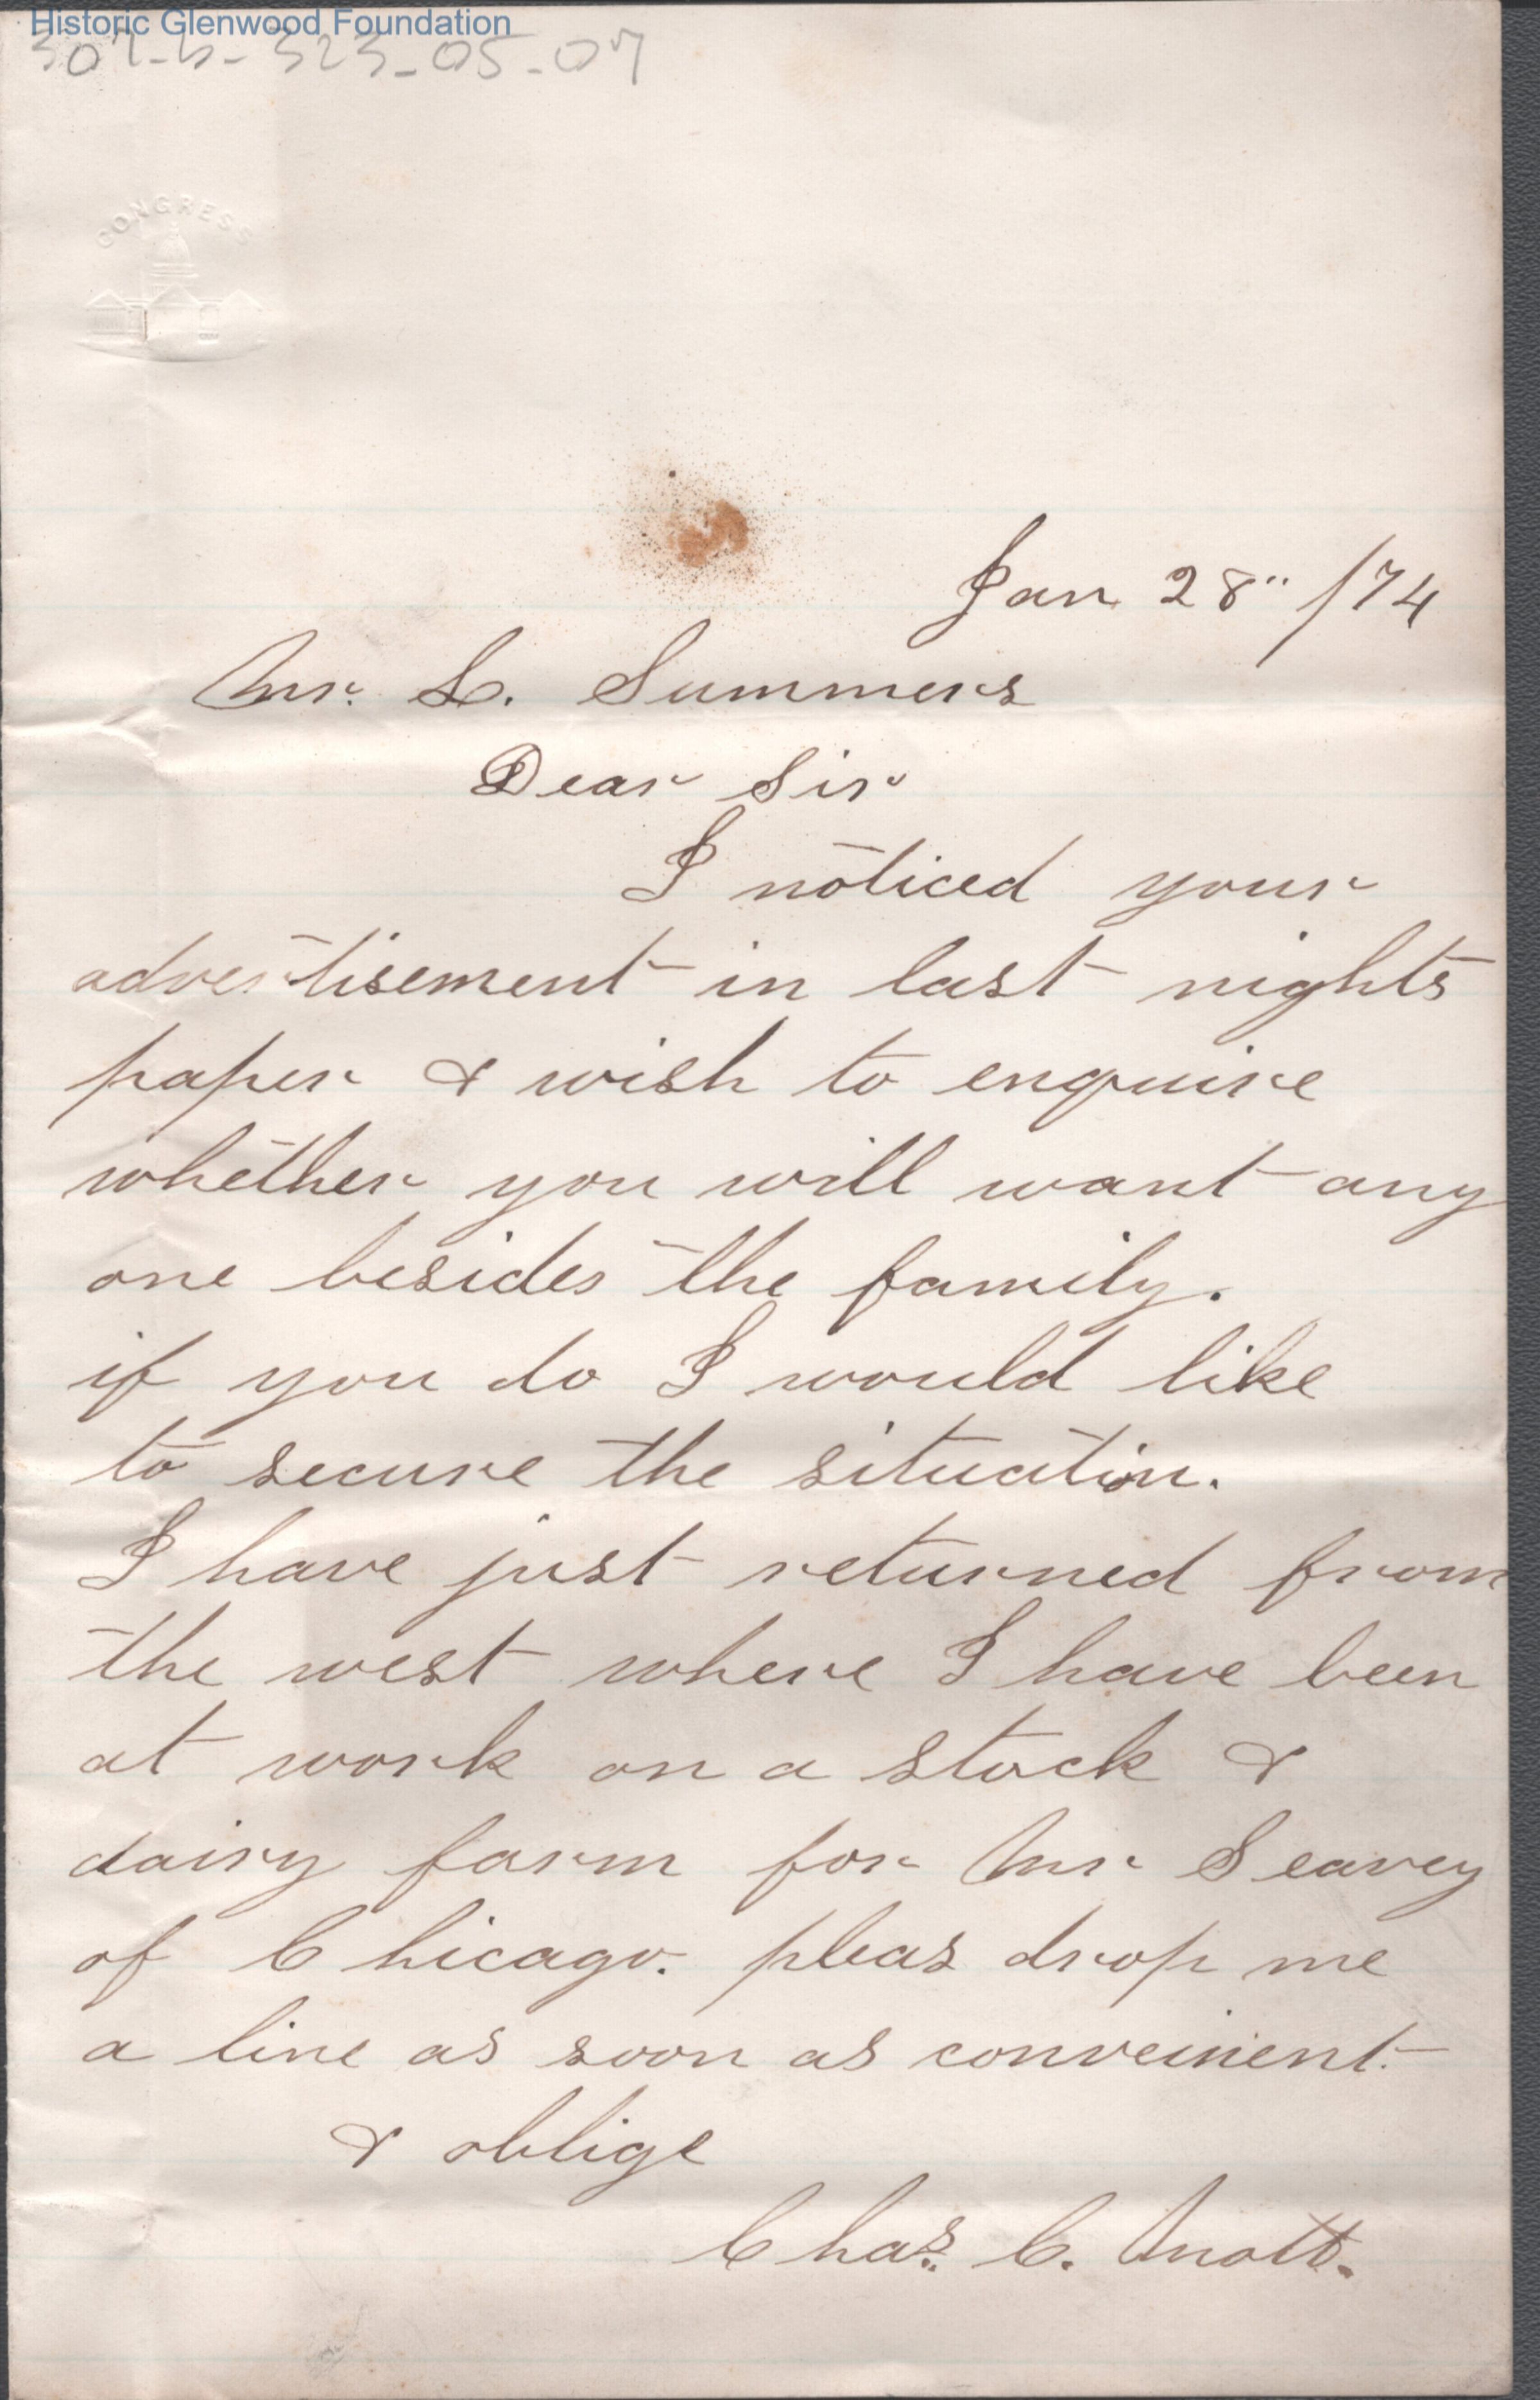 Historic Glenwood Foundation
307-b-323-05-07
CONGRESS
Jan 28" /74
Mr. L. Summers
Dear Sir
I noticed your
advertisement in last nights
paper & wish to enquire
whether you will want any
one besides the family.
if you do I would like
to secure the situation.
I have just returned from
the west where I have been
at work on a stock &
dairy farm for Mr Seavey
of Chicago. pleas drop me
a line as soon as conveinent.
& oblige
Chas. C. Mott.